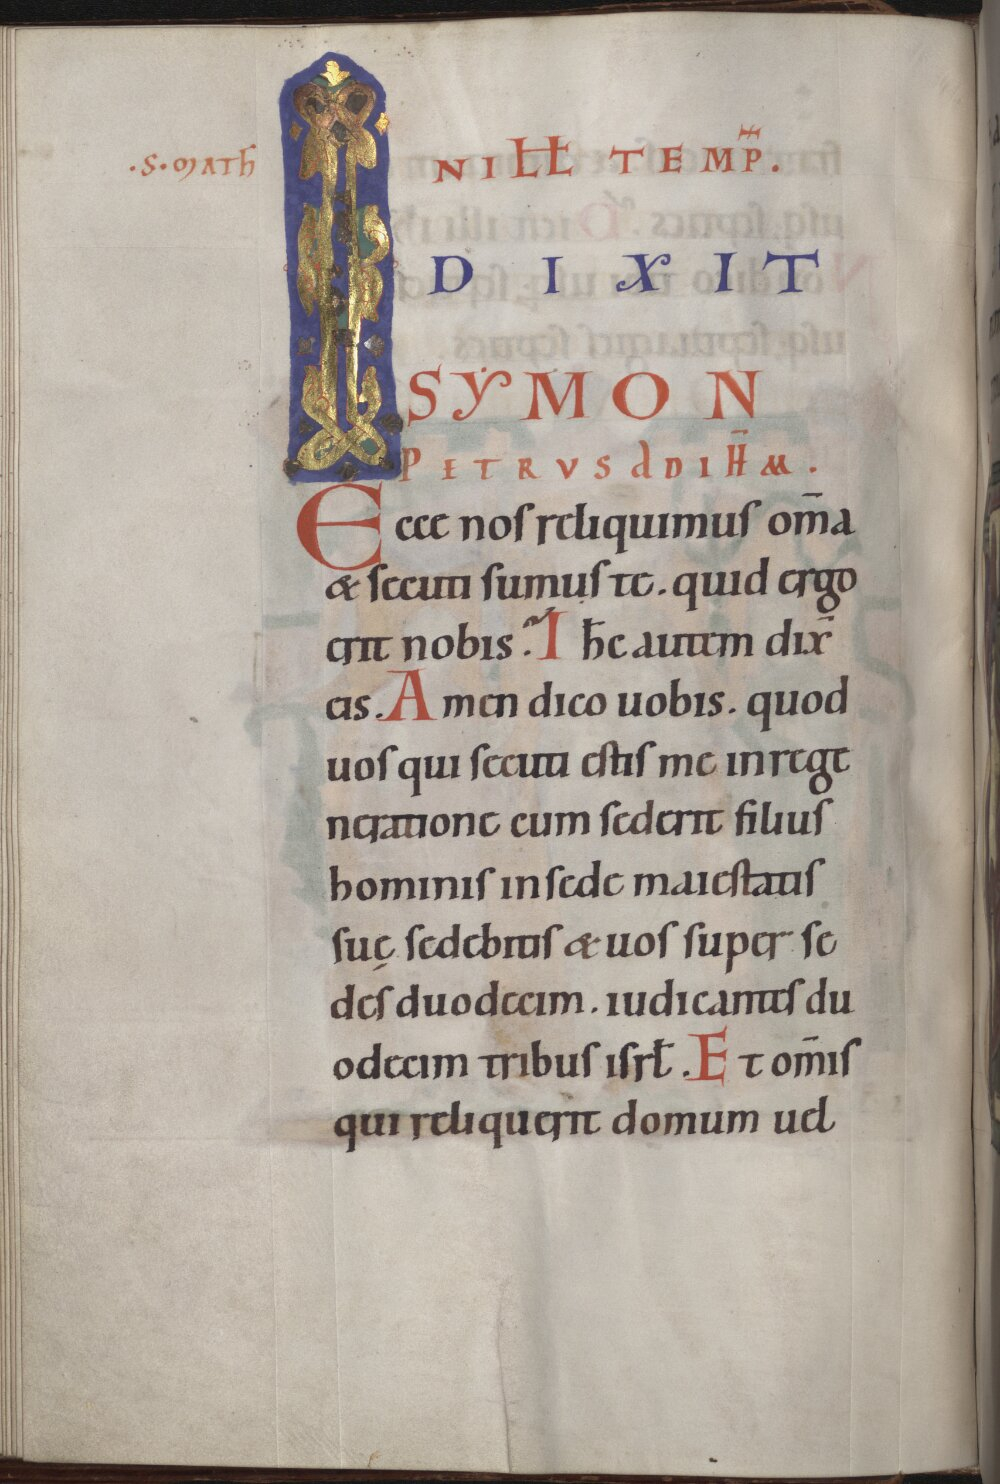 ·S·MATH̄
IN ILL TEMP̄.
DIXIT
SẎMON
PETRUS AD IH̄M.
Ecce nos reliquimus om̄a
& secuti sumus te. quid ergo
erit nobis? Ih̄c autem dix̄
eis. Amen dico uobis. quod
uos qui secuti estis me in rege
neratione cum sederit filius
hominis in sede maiestatis
suę sedebitis & uos super se
des duodecim. iudicantes du
odecim tribus isrł. Et om̄is
qui reliquerit domum uel